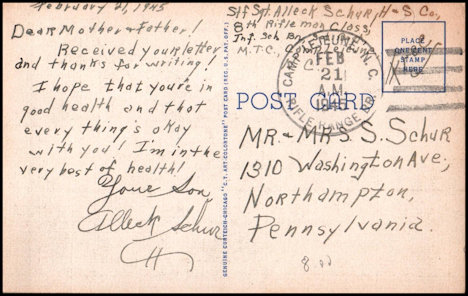 February 21, 1945
Dear Mother & Father!
Received your letter
and thanks for writing!
I hope that you're in
good health and that
every thing's okay
with you! I'm in the
very best of health!
Your Son,
Alleck Schur
GENUINE CURTEICH-CHICAGO "C.T. ART-COLORTONE" POST CARD (REG. U.S. PAT. OFF.)
S/Sgt. Alleck Schur, H & S. Co.,
8th Rifle mor Class,
Inf. Sch. Bn.
M.T.C., Camp Lejeune, N.C.
CAMP LEJEUNE, N.C.
FEB
21
AM
1945
RIFLE RANGE BR.
PLACE
ONE CENT
STAMP
HERE
Free
POST CARD
Mr. & Mrs. S. Schur
1310 Washington Ave.,
Northampton,
Pennsylvania.
8.00